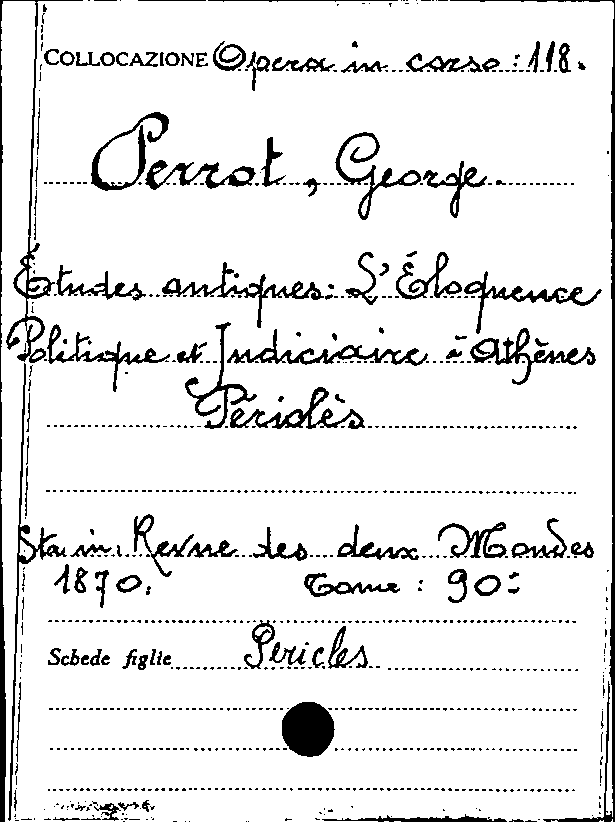 COLLOCAZIONE Opera in corso: 118.
Perrot, George.
Études antiques: L'Éloquence
Politique et Judiciaire à Athènes
Périclès
Sta in: Revue des deux Mondes
1870. Tome: 90:
Schede figlie Pericles